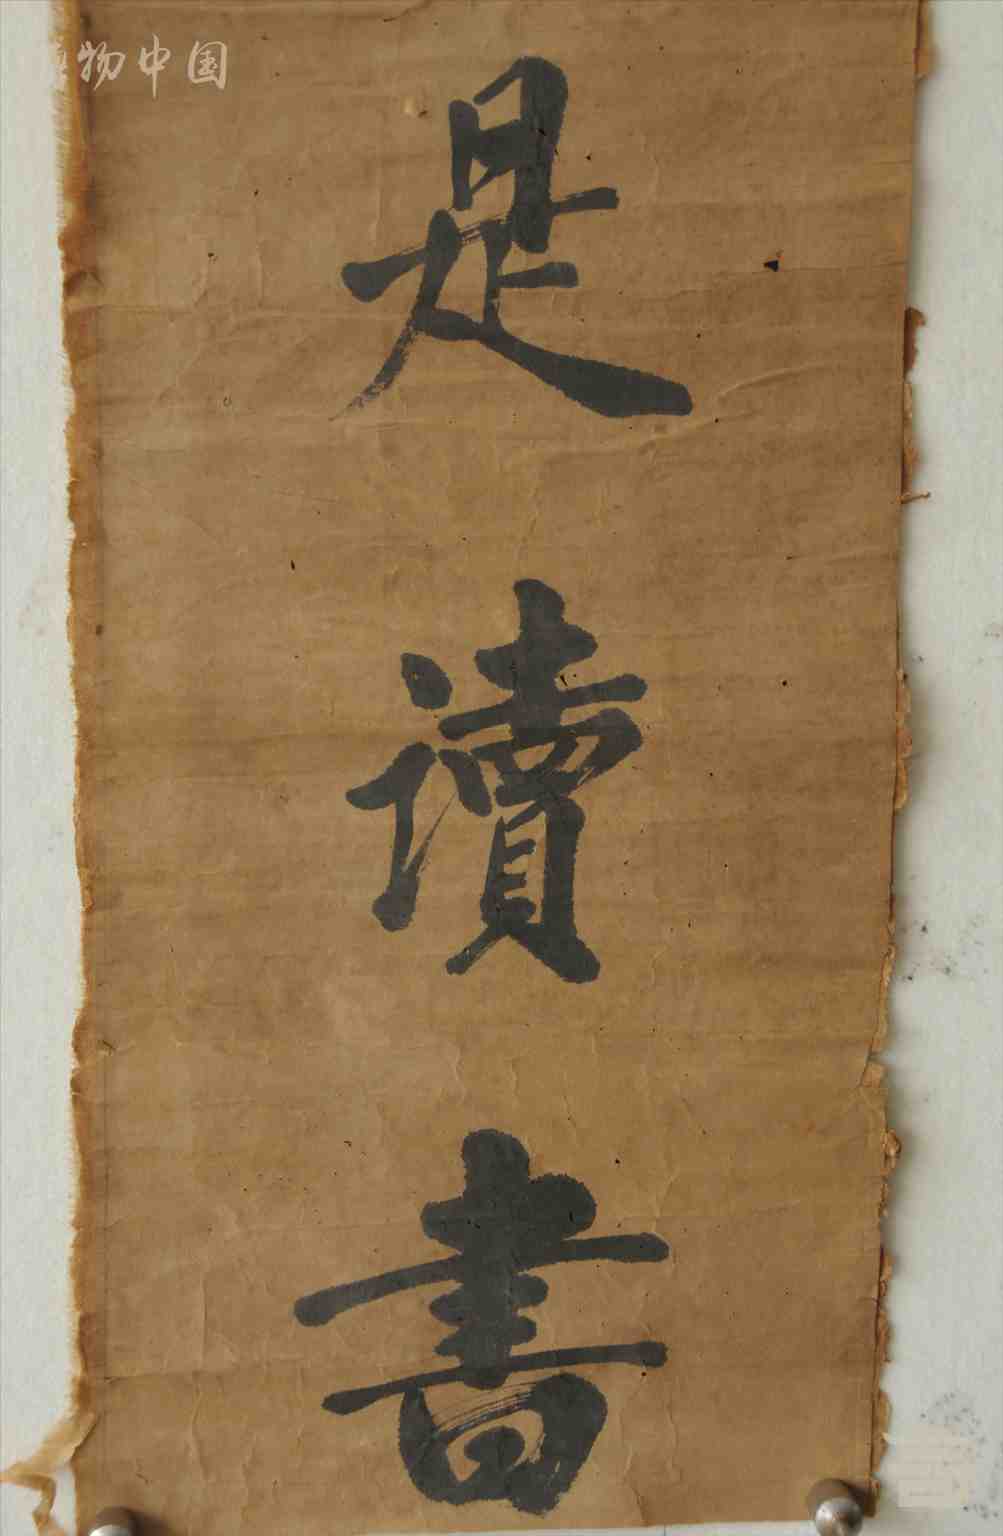 物中国
是
讀
書